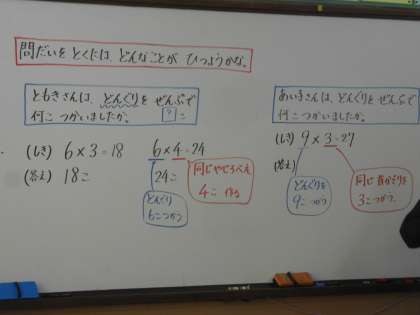 問だいをとくには、どんなことがひつようかな。
ともきさんは、どんぐりをぜんぶで
何こつかいましたか。
?こ
(しき) 6×3=18
(答え) 18こ
6×4=24
24こ
どんぐり
6こつかう
同じやじろべえ
4こ作る
あい子さんは、どんぐりをぜんぶで
何こつかいましたか。
(しき) 9×3=27
(答え)
どんぐりを
9こつかう
同じ
3こつかう